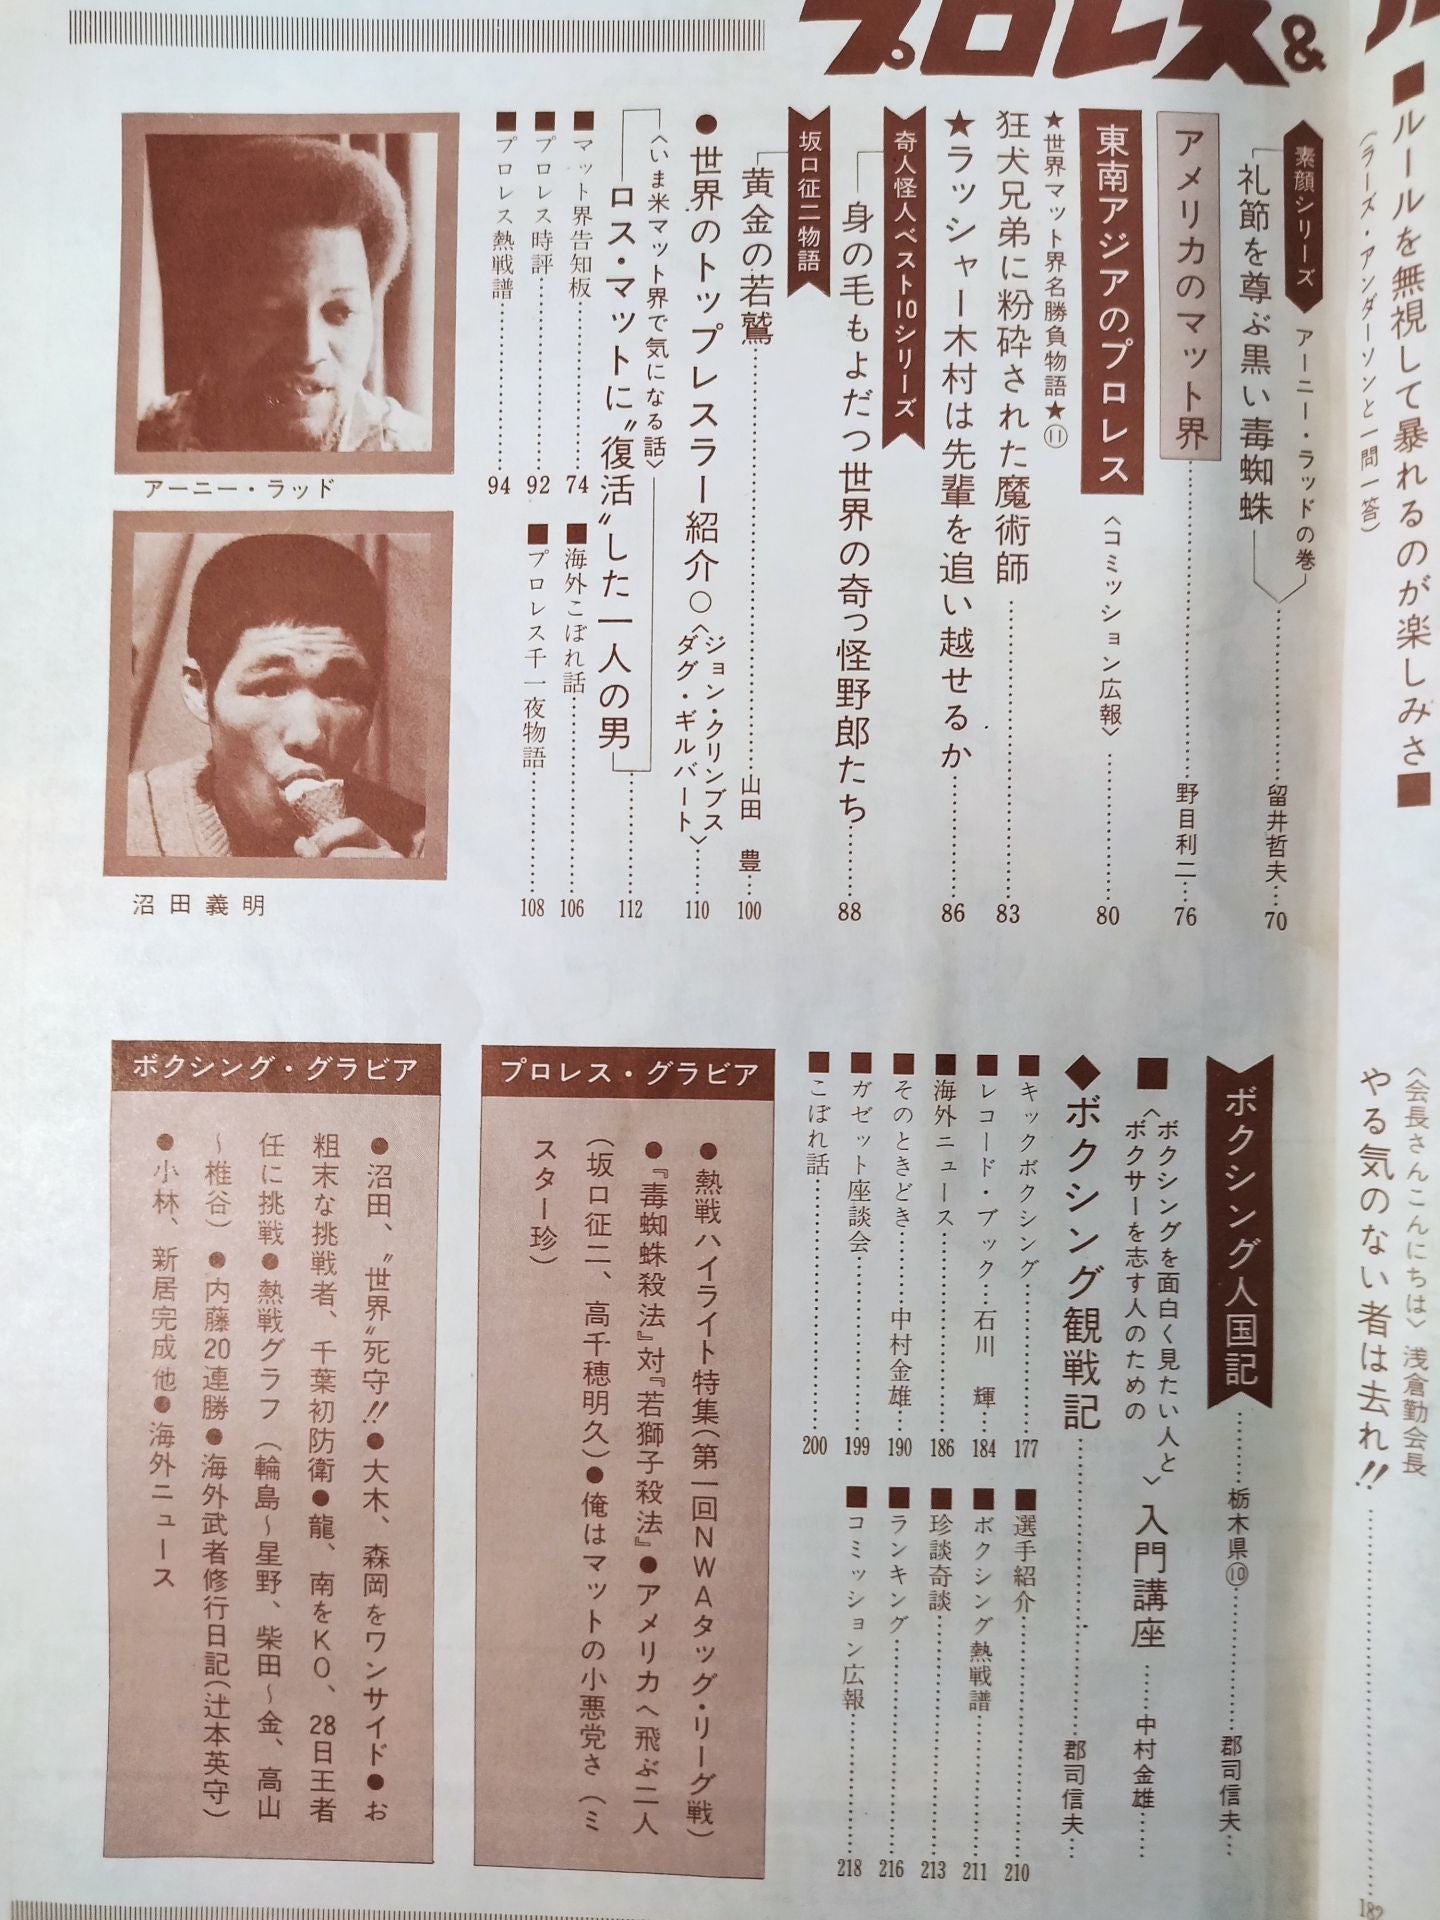 プロレス&
■ルールを無視して暴れるのが楽しみさ■
(ラーズ・アンダーソンと一問一答)
素顔シリーズ
アーニー・ラッドの巻
礼節を尊ぶ黒い毒蜘蛛
留井哲夫…70
アメリカのマット界
野目利二…76
東南アジアのプロレス
〈コミッション広報〉
80
★世界マット界名勝負物語★⑪
狂犬兄弟に粉砕された魔術師
83
★ラッシャー木村は先輩を追い越せるか
86
奇人怪人ベスト10シリーズ
身の毛もよだつ世界の奇っ怪野郎たち
88
坂口征二物語
黄金の若鷲
山田 豊…100
●世界のトップレスラー紹介○
〈ジョン・クリンプス
ダグ・ギルバート〉
110
〈いま米マット界で気になる話〉
ロス・マットに〝復活〟した一人の男
112
■マット界告知板
74
■海外こぼれ話
106
■プロレス時評
92
■プロレス千一夜物語
108
■プロレス熱戦譜
94
アーニー・ラッド
沼田義明
〈会長さんこんにちは〉浅倉勤会長
やる気のない者は去れ!!
182
ボクシング人国記
栃木県⑩
郡司信夫
■〈ボクシングを面白く見たい人と
ボクサーを志す人のための〉
入門講座
中村金雄
◆ボクシング観戦記
郡司信夫
■キックボクシング
177
■選手紹介
210
■レコード・ブック…石川 輝
184
■ボクシング熱戦譜
211
■海外ニュース
186
■珍談奇談
213
■そのときどき…中村金雄
190
■ランキング
216
■ガゼット座談会
199
■コミッション広報
218
■こぼれ話
200
プロレス・グラビア
●熱戦ハイライト特集(第一回NWAタッグ・リーグ戦)
●『毒蜘蛛殺法』対『若獅子殺法』●アメリカへ飛ぶ二人
(坂口征二、高千穂明久)●俺はマットの小悪党さ(ミ
スター珍)
ボクシング・グラビア
●沼田、〝世界〟死守!!●大木、森岡をワンサイド●お
粗末な挑戦者、千葉初防衛●龍、南をKO、28日王者
任に挑戦●熱戦グラフ(輪島〜星野、柴田〜金、高山
〜椎谷)●内藤20連勝●海外武者修行日記(辻本英守)
●小林、新居完成他●海外ニュース